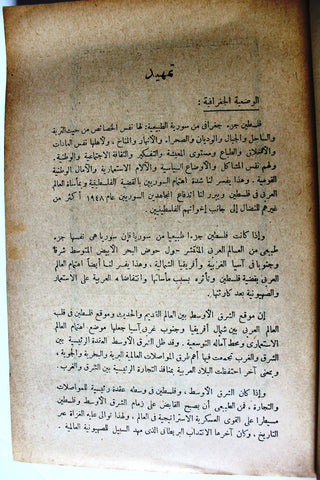 تمهيد
الوضعية الجغرافية :
فلسطين جزء جغرافي من سورية الطبيعية : لها نفس الخصائص من حيث التربة
والساحل والجبال والوديان والصحراء والأنهار والمناخ ، ولأهلها نفس العادات
والأخلاق والطباع ومستوى المعيشة والتفكير والثقافة الاجتماعية والوطنية .
ولهم نفس المشاكل والأوضاع السياسية والآلام الاستعمارية والآمال الوطنية
القومية . وهذا يفسر لنا شدة اهتمام السوريين بالقضية الفلسطينية وبمأساة العالم
العربي في فلسطين ويبرر لنا اندفاع المجاهدين السوريين عام ١٩٤٨ أكثر من
غيرهم للنضال إلى جانب إخوانهم الفلسطينيين .
وإذا كانت فلسطين جزءا طبيعيا من سوريا فإن سوريا هي نفسها جزء
طبيعي من العالم العربي المنتشر حول حوض البحر الأبيض المتوسط شرقا
وجنوبا في آسيا الغربية وأفريقيا الشمالية ، وهذا يفسر لنا أيضا اهتمام العالم
العربي بقضية فلسطين وتأثره بسبب مأساتها وانتفاضاته العربية على الاستعمار
والصهيونية بعد كارثتها .
إن موقع الشرق الأوسط بين العالم القديم والحديث وموقع فلسطين في قلب
العالم العربي بين شمال أفريقيا وجنوب غربي آسيا جعلها موضع اهتمام العالم
الاستعماري ومحط آماله التوسعية . وقد ظل الشرق الأوسط العقدة الرئيسية بين
الشرق والغرب تجمعت فيها أهم طرق المواصلات العالمية البرية والبحرية والجوية ،
وبمعنى آخر احتفظت البلاد العربية بمنافذ التجارة الرئيسية بين الشرق والغرب .
وإذا كان الشرق الأوسط ، وفلسطين في وسطه عقدة رئيسية للمواصلات
والتجارة . فمن الطبيعي أن يصبح القابض على زمام الشرق الأوسط وفلسطين ،
مسيطرا على القوى العسكرية الاستراتيجية في العالم . ولهذا توالى عليه الغزاة عبر
التاريخ ، وكان آخرها الانتداب البريطاني الذي مهد السبيل للصهيونية العالمية .